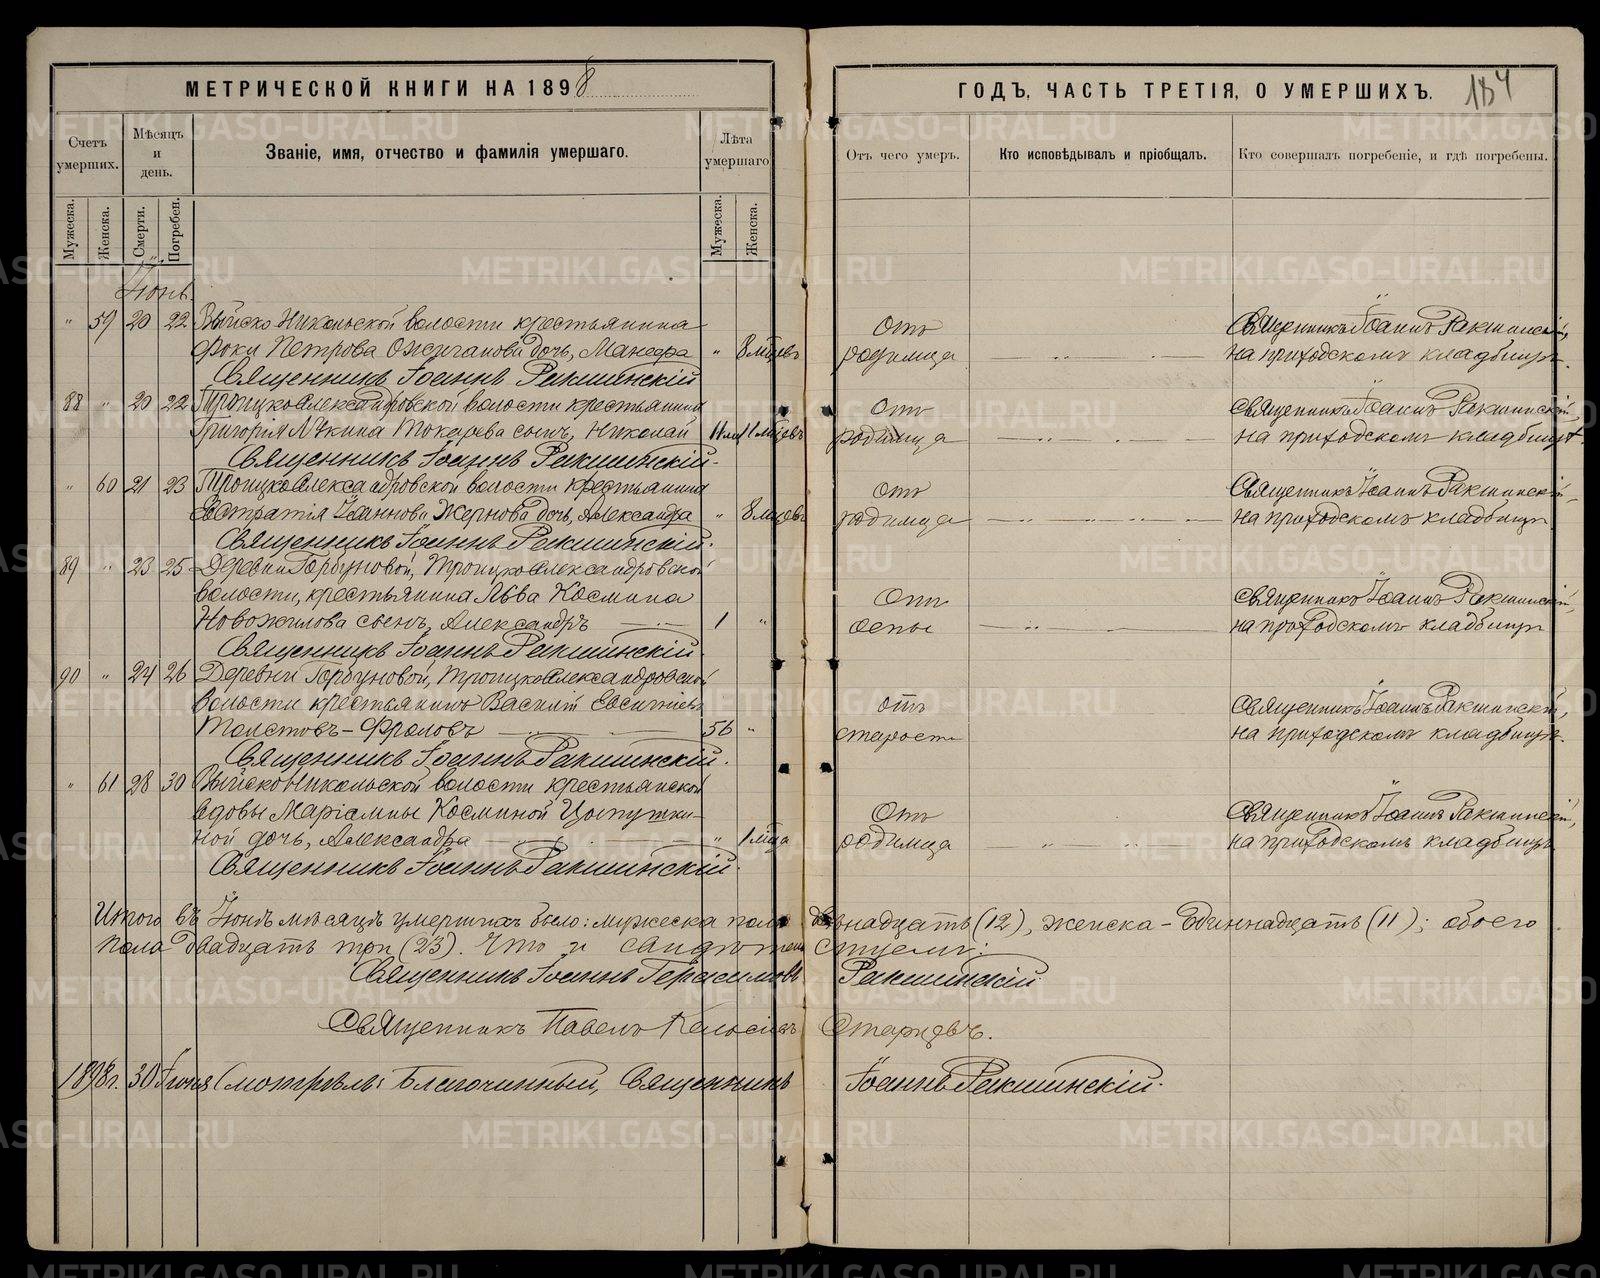 МЕТРИЧЕСКОЙ КНИГИ НА 1898 ГОДЪ, ЧАСТЬ ТРЕТІЯ, О УМЕРШИХЪ.
Счетъ умершихъ.
Мѣсяцъ и день.
Званіе, имя, отчество и фамилія умершаго.
Лѣта умершаго
Отъ чего умеръ.
Кто исповѣдывалъ и пріобщалъ.
Кто совершалъ погребеніе, и гдѣ погребены.
Мужеска. Женска. Смерти. Погребен. Мужеска. Женска.
Іюнь.
" 59 20 22 Выйско Никольской волости крестьянина Отъ Священникъ Іоаннъ Ракшинскій,
Фоки Петрова Ожиганова дочь, Манефа " 8 мцевъ родимца на приходскомъ кладбищѣ.
Священникъ Іоаннъ Ракшинскій
88 " 20 22 ТроицкоАлександровской волости крестьянина Отъ Священникъ Іоаннъ Ракшинскій,
Григорія Токарева сынъ, Николай родимца на приходскомъ кладбищѣ.
Священникъ Іоаннъ Ракшинскій.
" 60 21 23 ТроицкоАлександровской волости крестьянина Отъ Священникъ Іоаннъ Ракшинскій,
Евстратія Іоаннова Жернова дочь, Александра " 8 мцевъ родимца на приходскомъ кладбищѣ
Священникъ Іоаннъ Ракшинскій.
89 " 23 25 Деревни Горбуновой, ТроицкоАлександровской
волости, крестьянина Льва Космина Отъ Священникъ Іоаннъ Ракшинскій,
Новожилова сынъ, Александръ 1 " оспы на приходскомъ кладбищѣ
Священникъ Іоаннъ Ракшинскій.
90 " 24 26 Деревни Горбуновой, ТроицкоАлександровской
волости крестьянинъ Василій отъ Священникъ Іоаннъ Ракшинскій,
Толстовъ-Фроловъ 56 " старости на приходскомъ кладбищѣ.
Священникъ Іоаннъ Ракшинскій.
" 61 28 30 Выйско Никольской волости крестьянской
вдовы Маріамны Косминой Отъ Священникъ Іоаннъ Ракшинскій,
ной дочь, Александра " 1 мца родимца на приходскомъ кладбищѣ
Священникъ Іоаннъ Ракшинскій.
Итого въ Іюнѣ мѣсяцѣ умершихъ было: мужеска пола двѣнадцать (12), женска - одиннадцать (11); обоего
пола двадцать три (23). Что и свидѣтельствуемъ:
Священникъ Іоаннъ Герасимовъ Ракшинскій.
Священникъ Павелъ
1898 г. 30 Іюня Смотрѣлъ: Благочинный, Священникъ Іоаннъ Ракшинскій.
METRIKI.GASO-URAL.RU